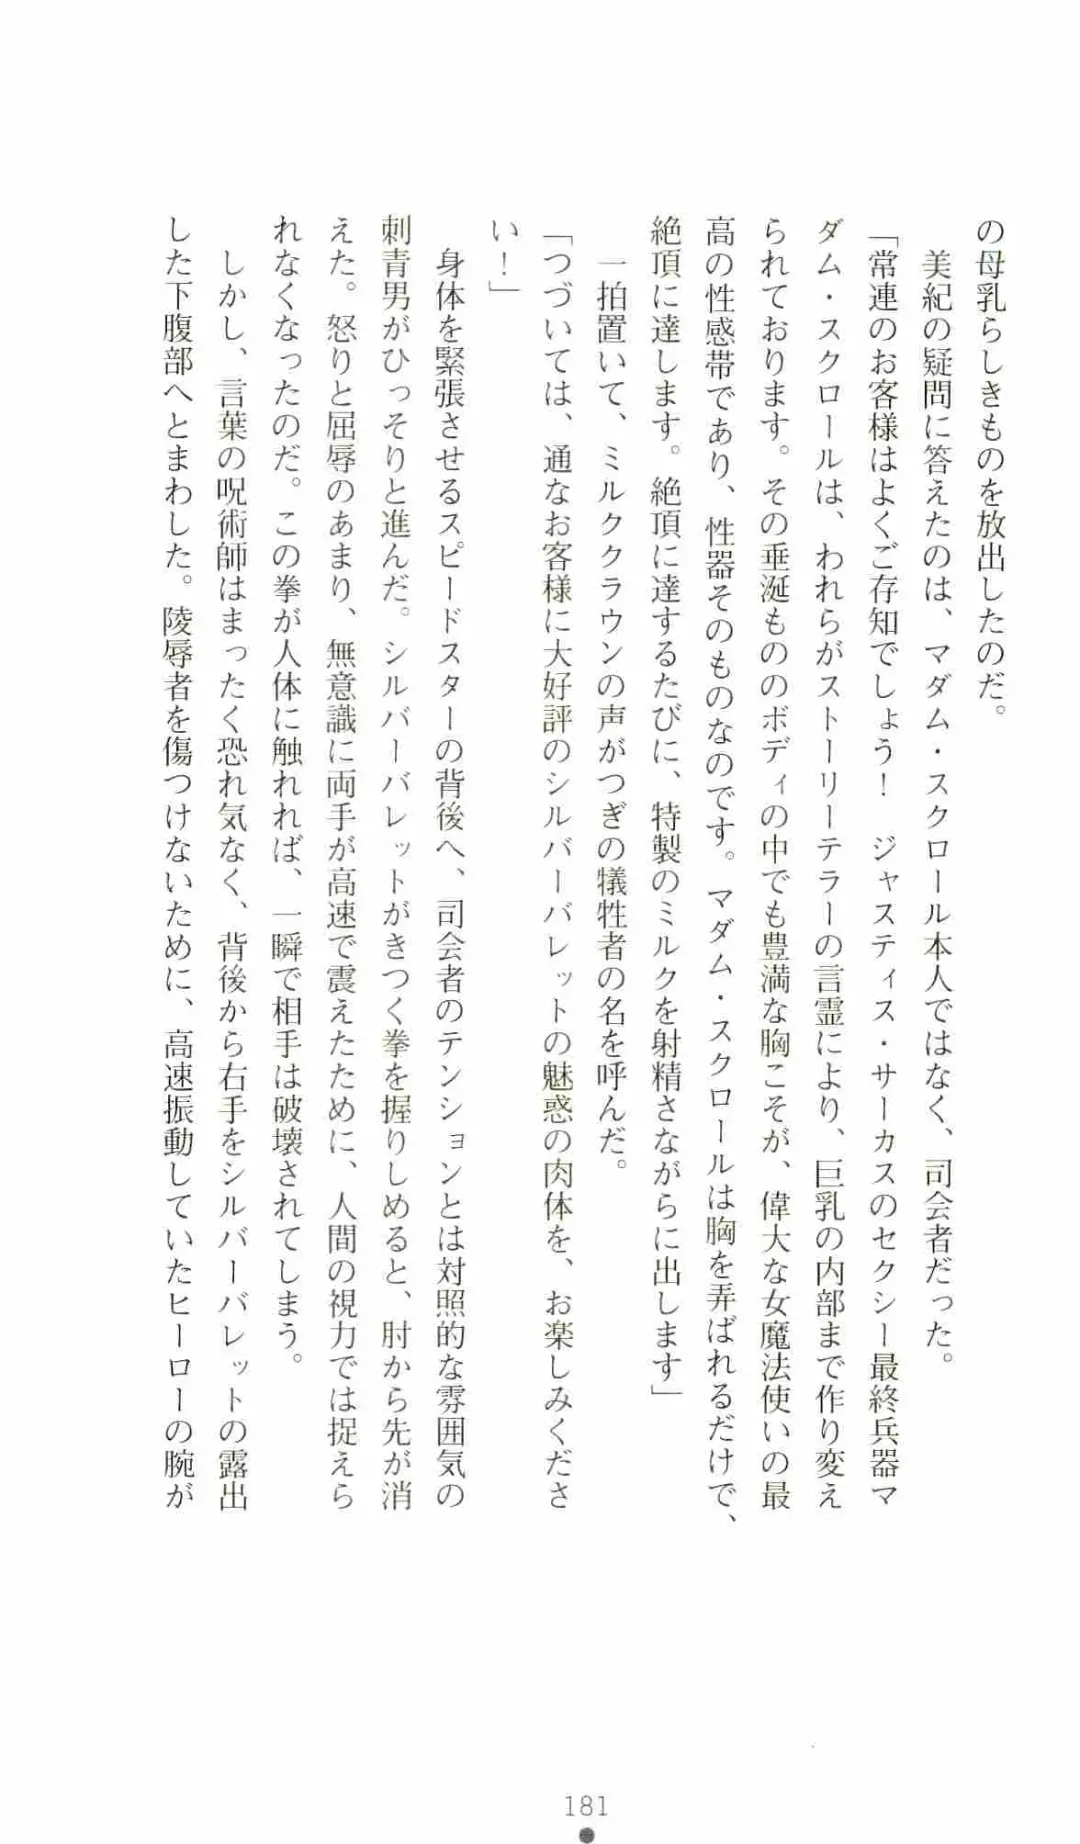 の母乳らしきものを放出したのだ。
　美紀の疑問に答えたのは、マダム・スクロール本人ではなく、司会者だった。
「常連のお客様はよくご存知でしょう！　ジャスティス・サーカスのセクシー最終兵器マ
ダム・スクロールは、われらがストーリーテラーの言霊により、巨乳の内部まで作り変え
られております。その垂涎もののボディの中でも豊満な胸こそが、偉大な女魔法使いの最
高の性感帯であり、性器そのものなのです。マダム・スクロールは胸を弄ばれるだけで、
絶頂に達します。絶頂に達するたびに、特製のミルクを射精さながらに出します」
　一拍置いて、ミルククラウンの声がつぎの犠牲者の名を呼んだ。
「つづいては、通なお客様に大好評のシルバーバレットの魅惑の肉体を、お楽しみくださ
い！」
　身体を緊張させるスピードスターの背後へ、司会者のテンションとは対照的な雰囲気の
刺青男がひっそりと進んだ。シルバーバレットがきつく拳を握りしめると、肘から先が消
えた。怒りと屈辱のあまり、無意識に両手が高速で震えたために、人間の視力では捉えら
れなくなったのだ。この拳が人体に触れれば、一瞬で相手は破壊されてしまう。
　しかし、言葉の呪術師はまったく恐れ気なく、背後から右手をシルバーバレットの露出
した下腹部へとまわした。陵辱者を傷つけないために、高速振動していたヒーローの腕が
181